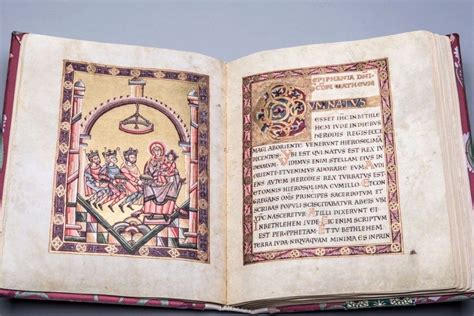 EPIPHANIA DNI
SCDM MATHEUM
CUM NATUS
ESSET IHC IN BETHLE
HEM IUDE IN DIEBUS
HERODIS REGIS ECCE
MAGI AB ORIENTE VENERUNT HIEROSOLIMA
DICENTES UBI EST QUI NATUS EST REX IV
VIDIMUS ENIM STELLAM EIUS IN
ORIENTE ET VENIMUS ADORARE
AUTEM HERODES REX TURBATUS EST
ET OMNIS HIEROSOLIMA CUM ILLO ET CON
GREGANS OMNS PRINCIPES SACERDOTUM ET
SCRIBAS POPULI SCISCITABATUR AB EIS UBI
XPC NASCERETUR AT ILLI DIXERUNT EI
BETHLEHEM IUDE SIC ENIM SCRIPTUM
EST PER PPHETAM ET TU BETHLEHEM
TERRA IUDA NEQUAQUAM MINIMA ES IN PRIN